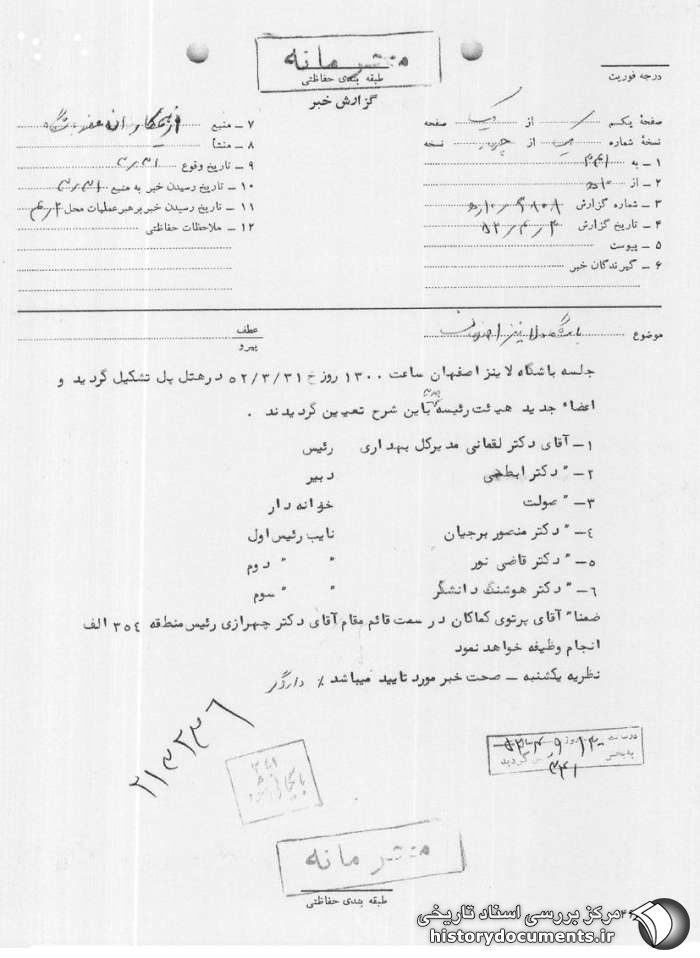 محرمانه
طبقه بندی حفاظتی
گزارش خبر
درجه فوریت
صفحهٔ یکم از یک صفحه
نسخهٔ شماره از نسخه
۱ – به ۳۴۱
۲ – از ۱۰ﻫ
۳ – شماره گزارش
۴ – تاریخ گزارش ۵۲/۴/۴
۵ – پیوست
۶ – گیرندگان خبر
۷ – منبع
۸ – منشأ
۹ – تاریخ وقوع ۳/۳۱
۱۰ – تاریخ رسیدن خبر به منبع ۳/۳۱
۱۱ – تاریخ رسیدن خبر برهبر عملیات محل
۱۲ – ملاحظات حفاظتی
موضوع باشگاه لاینز اصفهان
عطف
پیرو
جلسه باشگاه لاینز اصفهان ساعت ۱۳۰۰ روز خ ۵۲/۳/۳۱ در هتل پل تشکیل گردید و
اعضاء جدید هیئت رئیسه باین شرح تعیین گردیدند .
۱– آقای دکتر لقمانی مدیرکل بهداری رئیس
۲– " دکتر ابطحی دبیر
۳– " صولت خزانه دار
۴– " دکتر منصور برجیان نایب رئیس اول
۵– " دکتر قاضی نور " " دوم
۶– " دکتر هوشنگ دانشگر " " سوم
ضمنا" آقای پرتوی کماکان در سمت قائم مقام آقای دکتر چهرازی رئیس منطقه ۳۵۴ الف
انجام وظیفه خواهد نمود
نظریه یکشنبه – صحت خبر مورد تایید میباشد ٪
۲۱۳۲۳۶
۳۴۱
محرمانه
طبقه بندی حفاظتی
مرکز بررسی اسناد تاریخی
historydocuments.ir